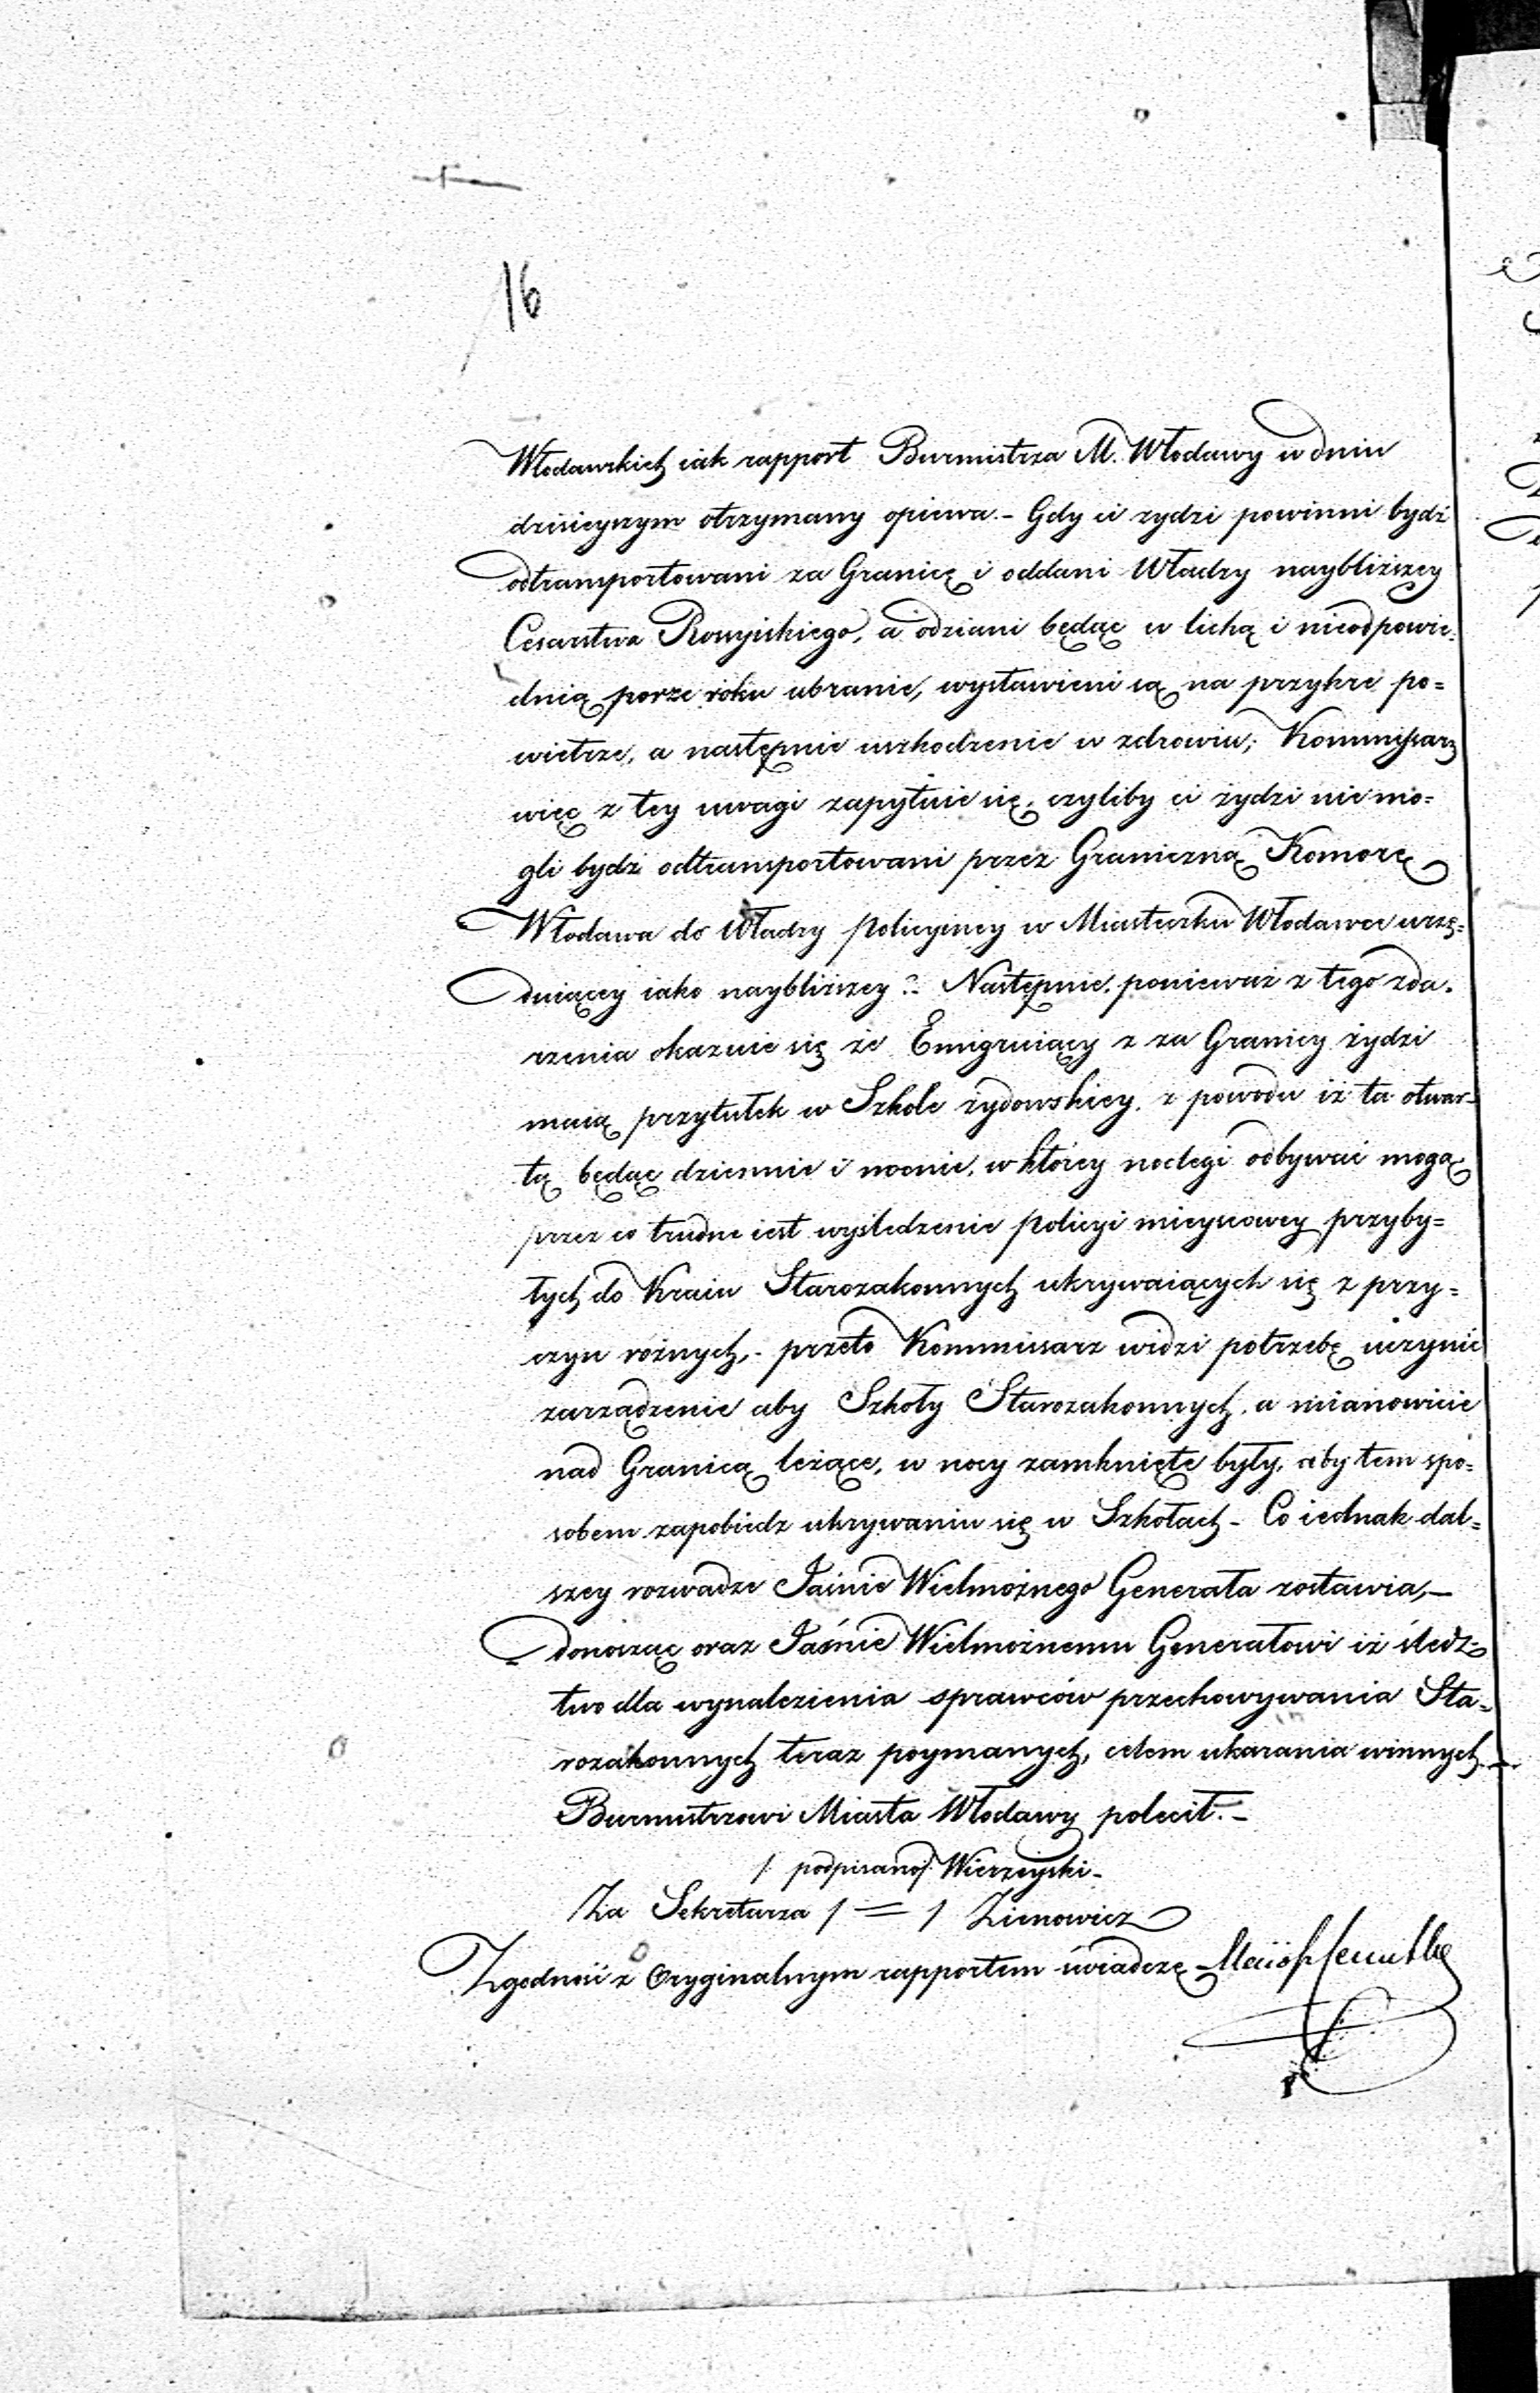 16
Włodawskich iak rapport Burmistrza M. Włodawy w dniu
dzisieyszym otrzymany opiewa.- Gdy ci zydzi powinni bydź
odtransportowani za Granicę i oddani Władzy naybliższey
Cesarstwa Rossyiskiego, a odziani będąc w lichą i nieodpowie=
dnią porze roku ubranie, wystawieni są na przykre po=
wietrze, a następnie uszkodzenie w zdrowiu; Kommissarz
więc z tey uwagi zapytuie się, czyliby ci żydzi nie mo=
gli bydź odtransportowani przez Graniczną Komorę
Włodawa do Władzy policyiney w Miasteczku Włodawce urzę=
duiącey iako naybliższey?- Następnie, ponieważ z tego zda=
rzenia okazuie się że Emigruiący z za Granicy żydzi
maią przytułek w Szkole żydowskiey, z powodu iż ta otwar=
tą będąc dziennie i nocnie, w którey noclegi odbywać mogą
przez co trudne iest wyśledzenie policyi mieyscowey przyby=
łych do Kraiu Starozakonnych ukrywaiących się z przy=
czyn rożnych,- przeto Kommissarz widzi potrzebę uczynić
zarządzenie aby Szkoły Starozakonnych, a mianowicie
nad Granicą leżące, w nocy zamknięte były, aby tem spo=
sobem zapobiedz ukrywaniu się w Szkołach- Co iednak dal=
szey rozwadze Jaśnie Wielmożnego Generała zostawia,-
donosząc oraz Jaśnie Wielmożnemu Generałowi iż śledz=
two dla wynalezienia sprawców przechowywania Sta=
rozakonnych teraz poymanych, celem ukarania winnych
Burmistrzowi Miasta Włodawy polecił.-
/: podpisano:/ Wierzeyski-
Za Sekretarza / = / Zienowicz
Zgodność z Oryginalnym rapportem świadczę